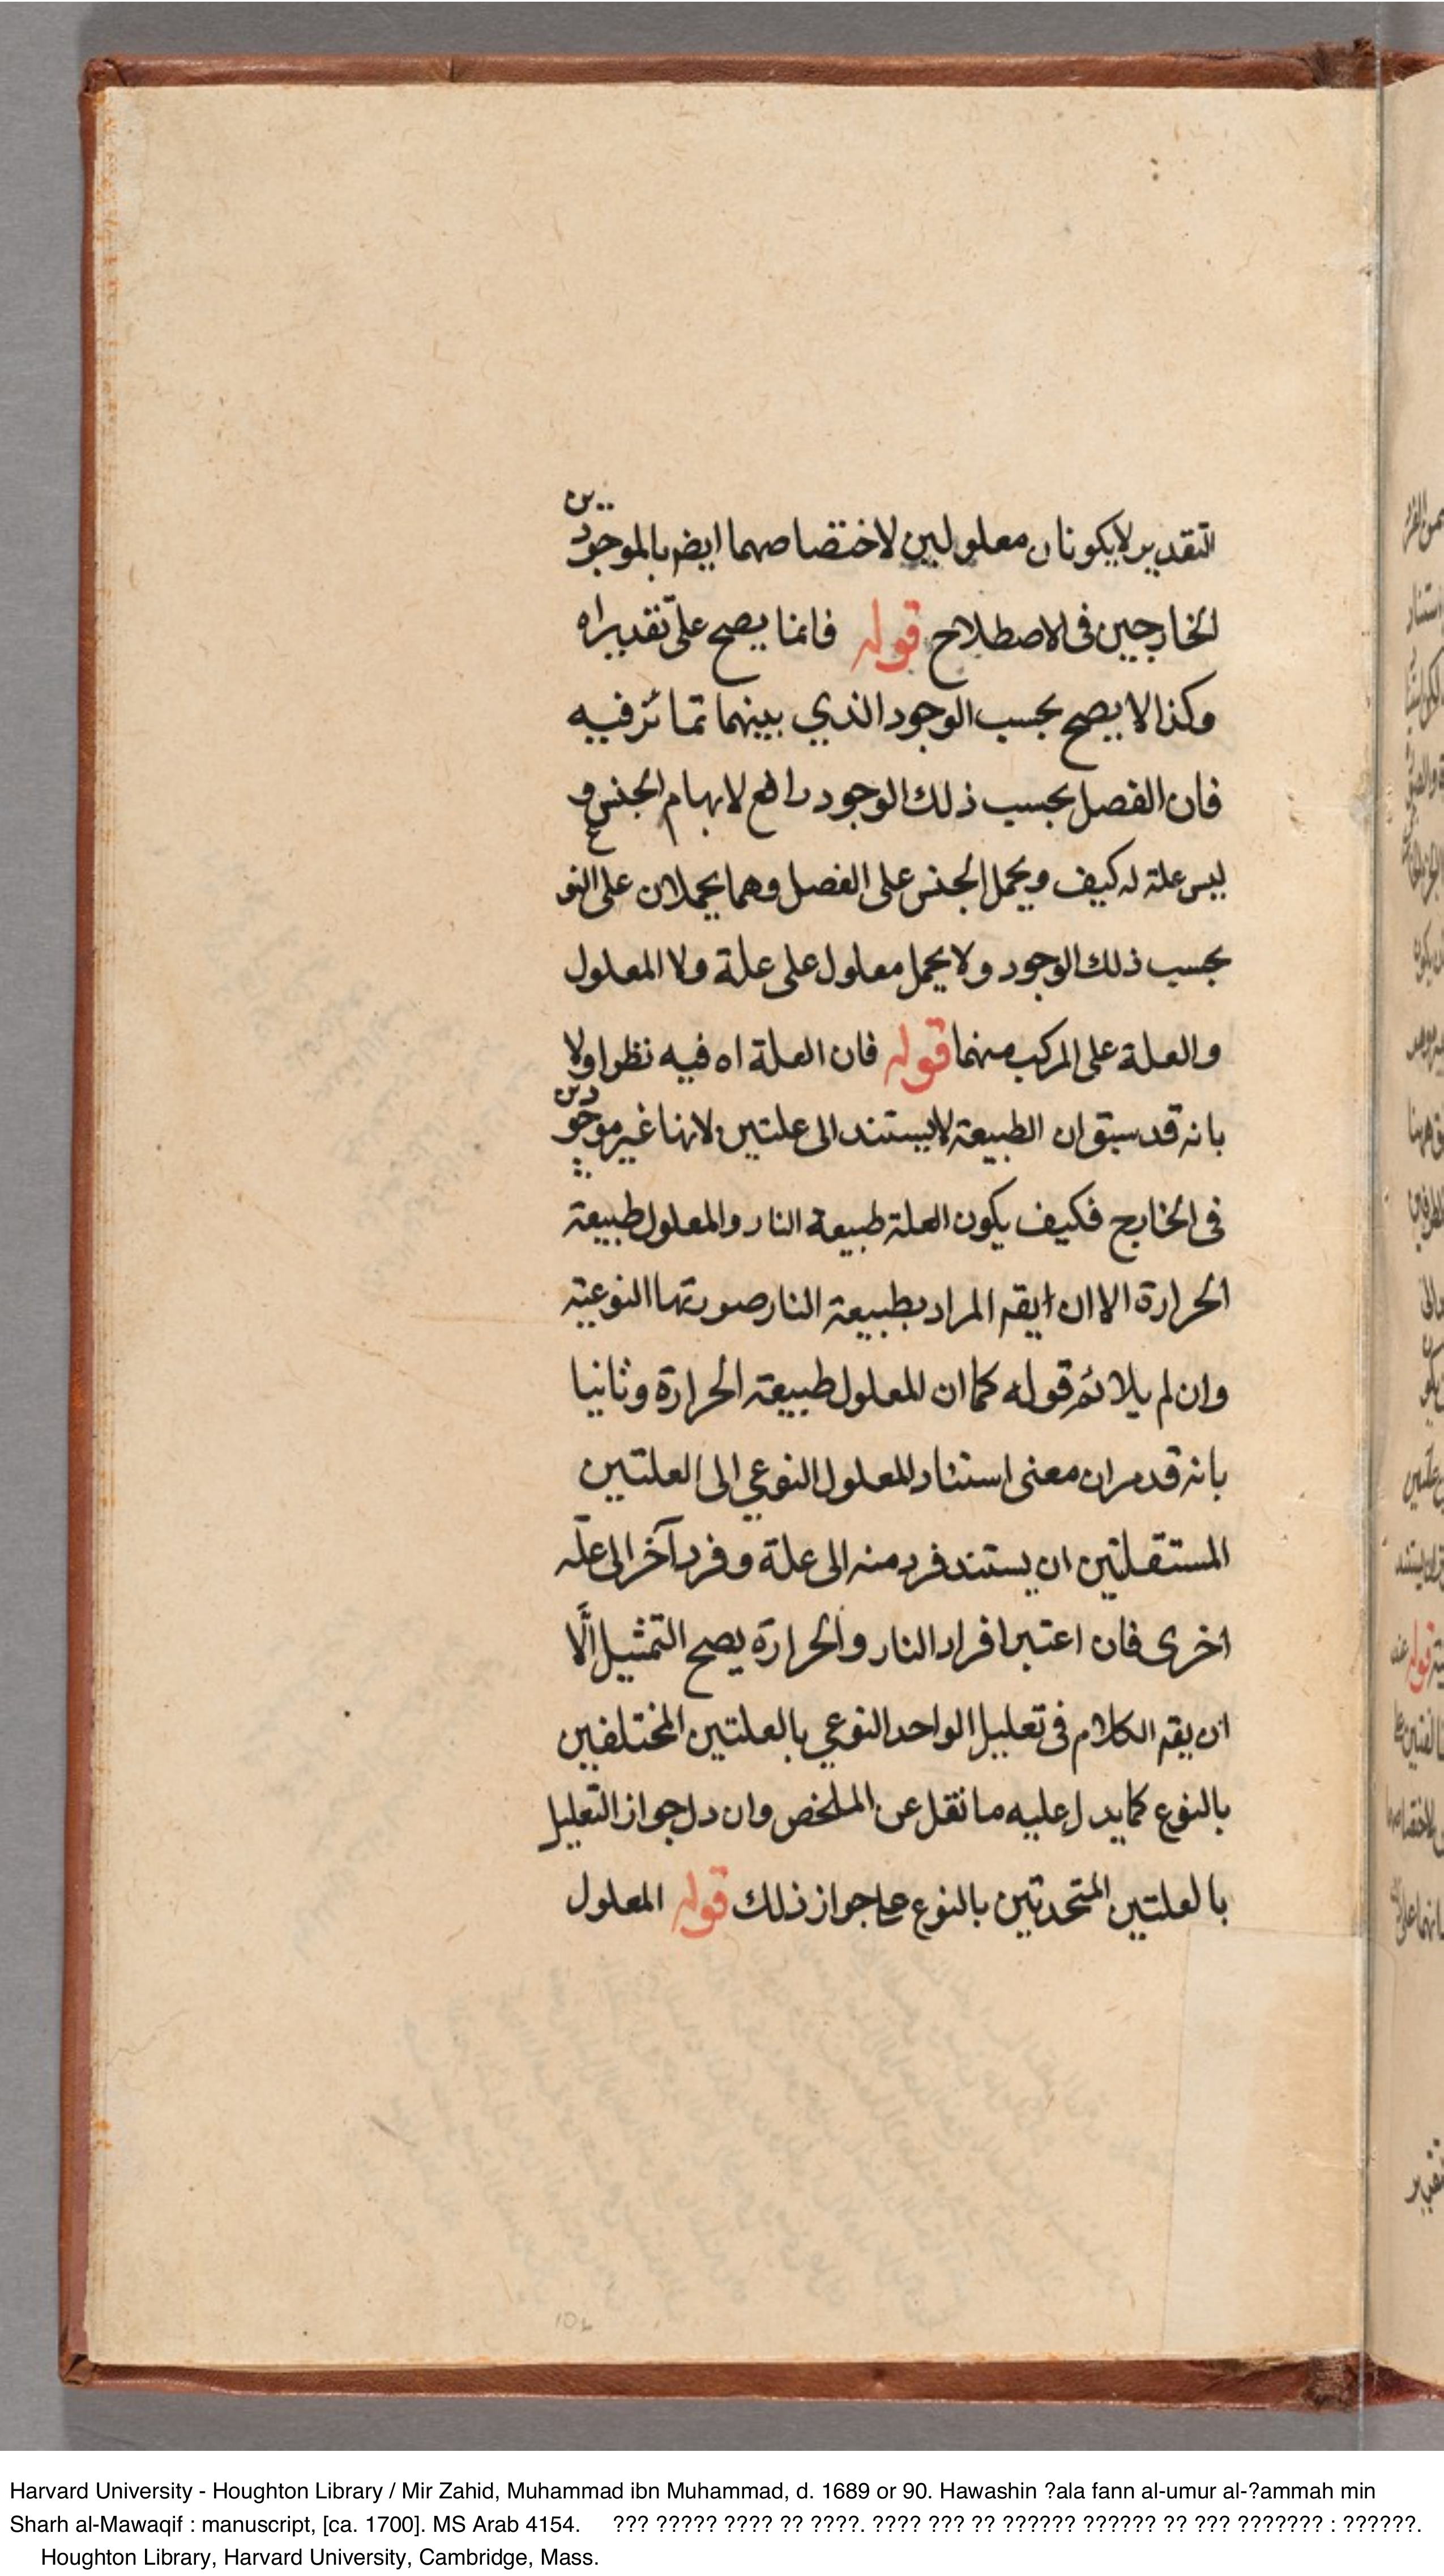 التقدير لا يكونان معلولين لاختصاصهما ايضه بالموجودين
الخارجين فى الاصطلاح قوله فانما يصح على تقدير اه
وكذا لا يصح بحسب الوجود الذي بينهما تمائز فيه
فان الفصل بحسب ذلك الوجود رافع لابهام الجنس و
ليس علة له كيف ويحمل الجنس على الفصل وهما يحملان على النوع
بحسب ذلك الوجود ولا يحمل معلول على علة ولا المعلول
والعلة على المركب منهما قوله فان العلة اه فيه نظر اولا
بانه قد سبق ان الطبيعة لا يستند الى علتين لانها غير موجودين
فى الخارج فكيف يكون العلة طبيعة النار والمعلول طبيعة
الحرارة الا ان ايقه المراد بطبيعة النار صورتها النوعية
وان لم يلائم قوله كما ان المعلول طبيعة الحرارة وثانيا
بانه قد مر ان معنى استناد المعلول النوعي الى العلتين
المستقلتين ان يستند فرد منه الى علة وفرد آخر الى علّة
اخرى فان اعتبر افراد النار والحرارة يصح التمثيل الّا
ان يقه الكلام فى تعليل الواحد النوعي بالعلتين المختلفين
بالنوع كما يدل عليه ما نقل عن الملخص وان دل جواز التعليل
بالعلتين المتحدتين بالنوع جواز ذلك قوله المعلول
102
Harvard University - Houghton Library / Mir Zahid, Muhammad ibn Muhammad, d. 1689 or 90. Hawashin ?ala fann al-umur al-?ammah min
Sharh al-Mawaqif : manuscript, [ca. 1700]. MS Arab 4154. ??? ????? ???? ?? ????. ???? ??? ?? ?????? ?????? ?? ??? ??????? : ??????.
Houghton Library, Harvard University, Cambridge, Mass.